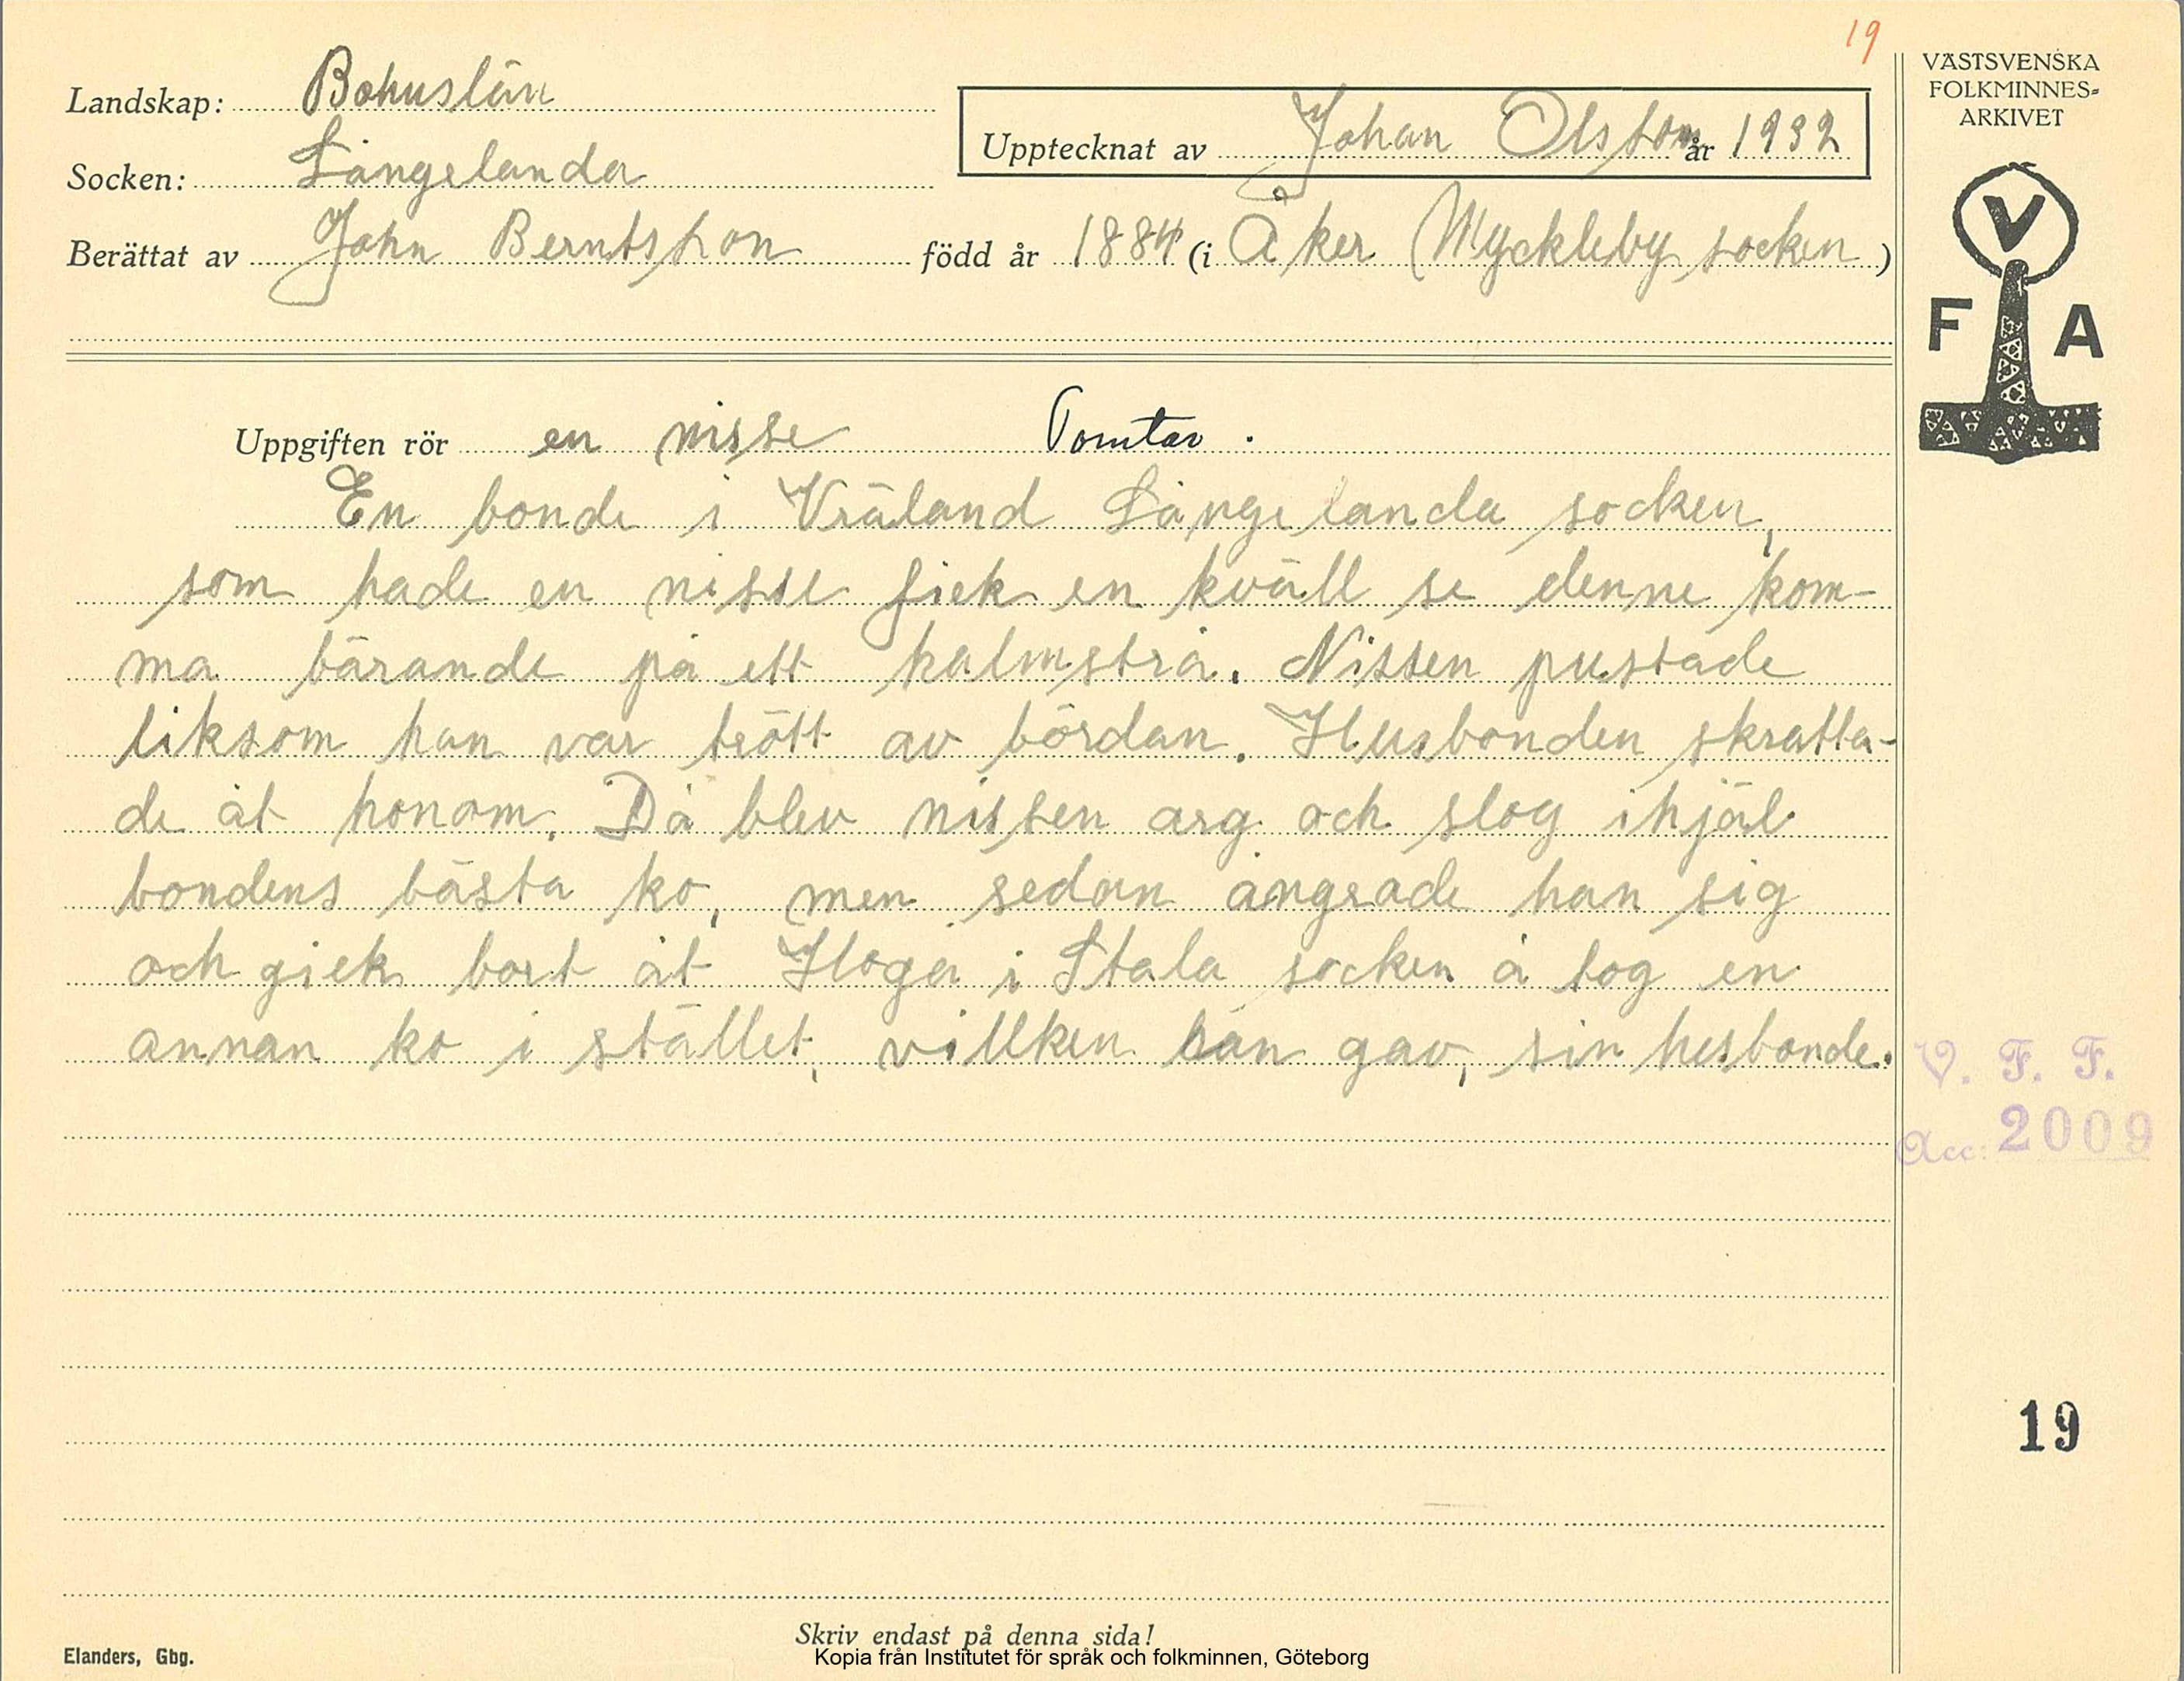 19
VÄSTSVENSKA
FOLKMINNES=
ARKIVET
Landskap: Bohuslän
Upptecknat av Johan Olsson år 1932
Socken: Långelanda
Berättat av John Berntsson född år 1884 (i Åker (Myckleby socken)
V
F A
Uppgiften rör en nisse Tomtar.
En bonde i Vräland Långelanda socken,
som hade en nisse fick en kväll se denne kom-
ma bärande på ett halmstrå. Nissen pustade
liksom han var trött av bördan. Husbonden skratta-
de åt honom. Då blev nissen arg och slog ihjäl
bondens bästa ko, men sedan ångrade han sig
och gick bort åt Höga i Stala socken å tog en
annan ko i stället, villken han gav, sin husbonde.
V. F. F.
Acc: 2009
19
Skriv endast på denna sida!
Kopia från Institutet för språk och folkminnen, Göteborg
Elanders, Gbg.